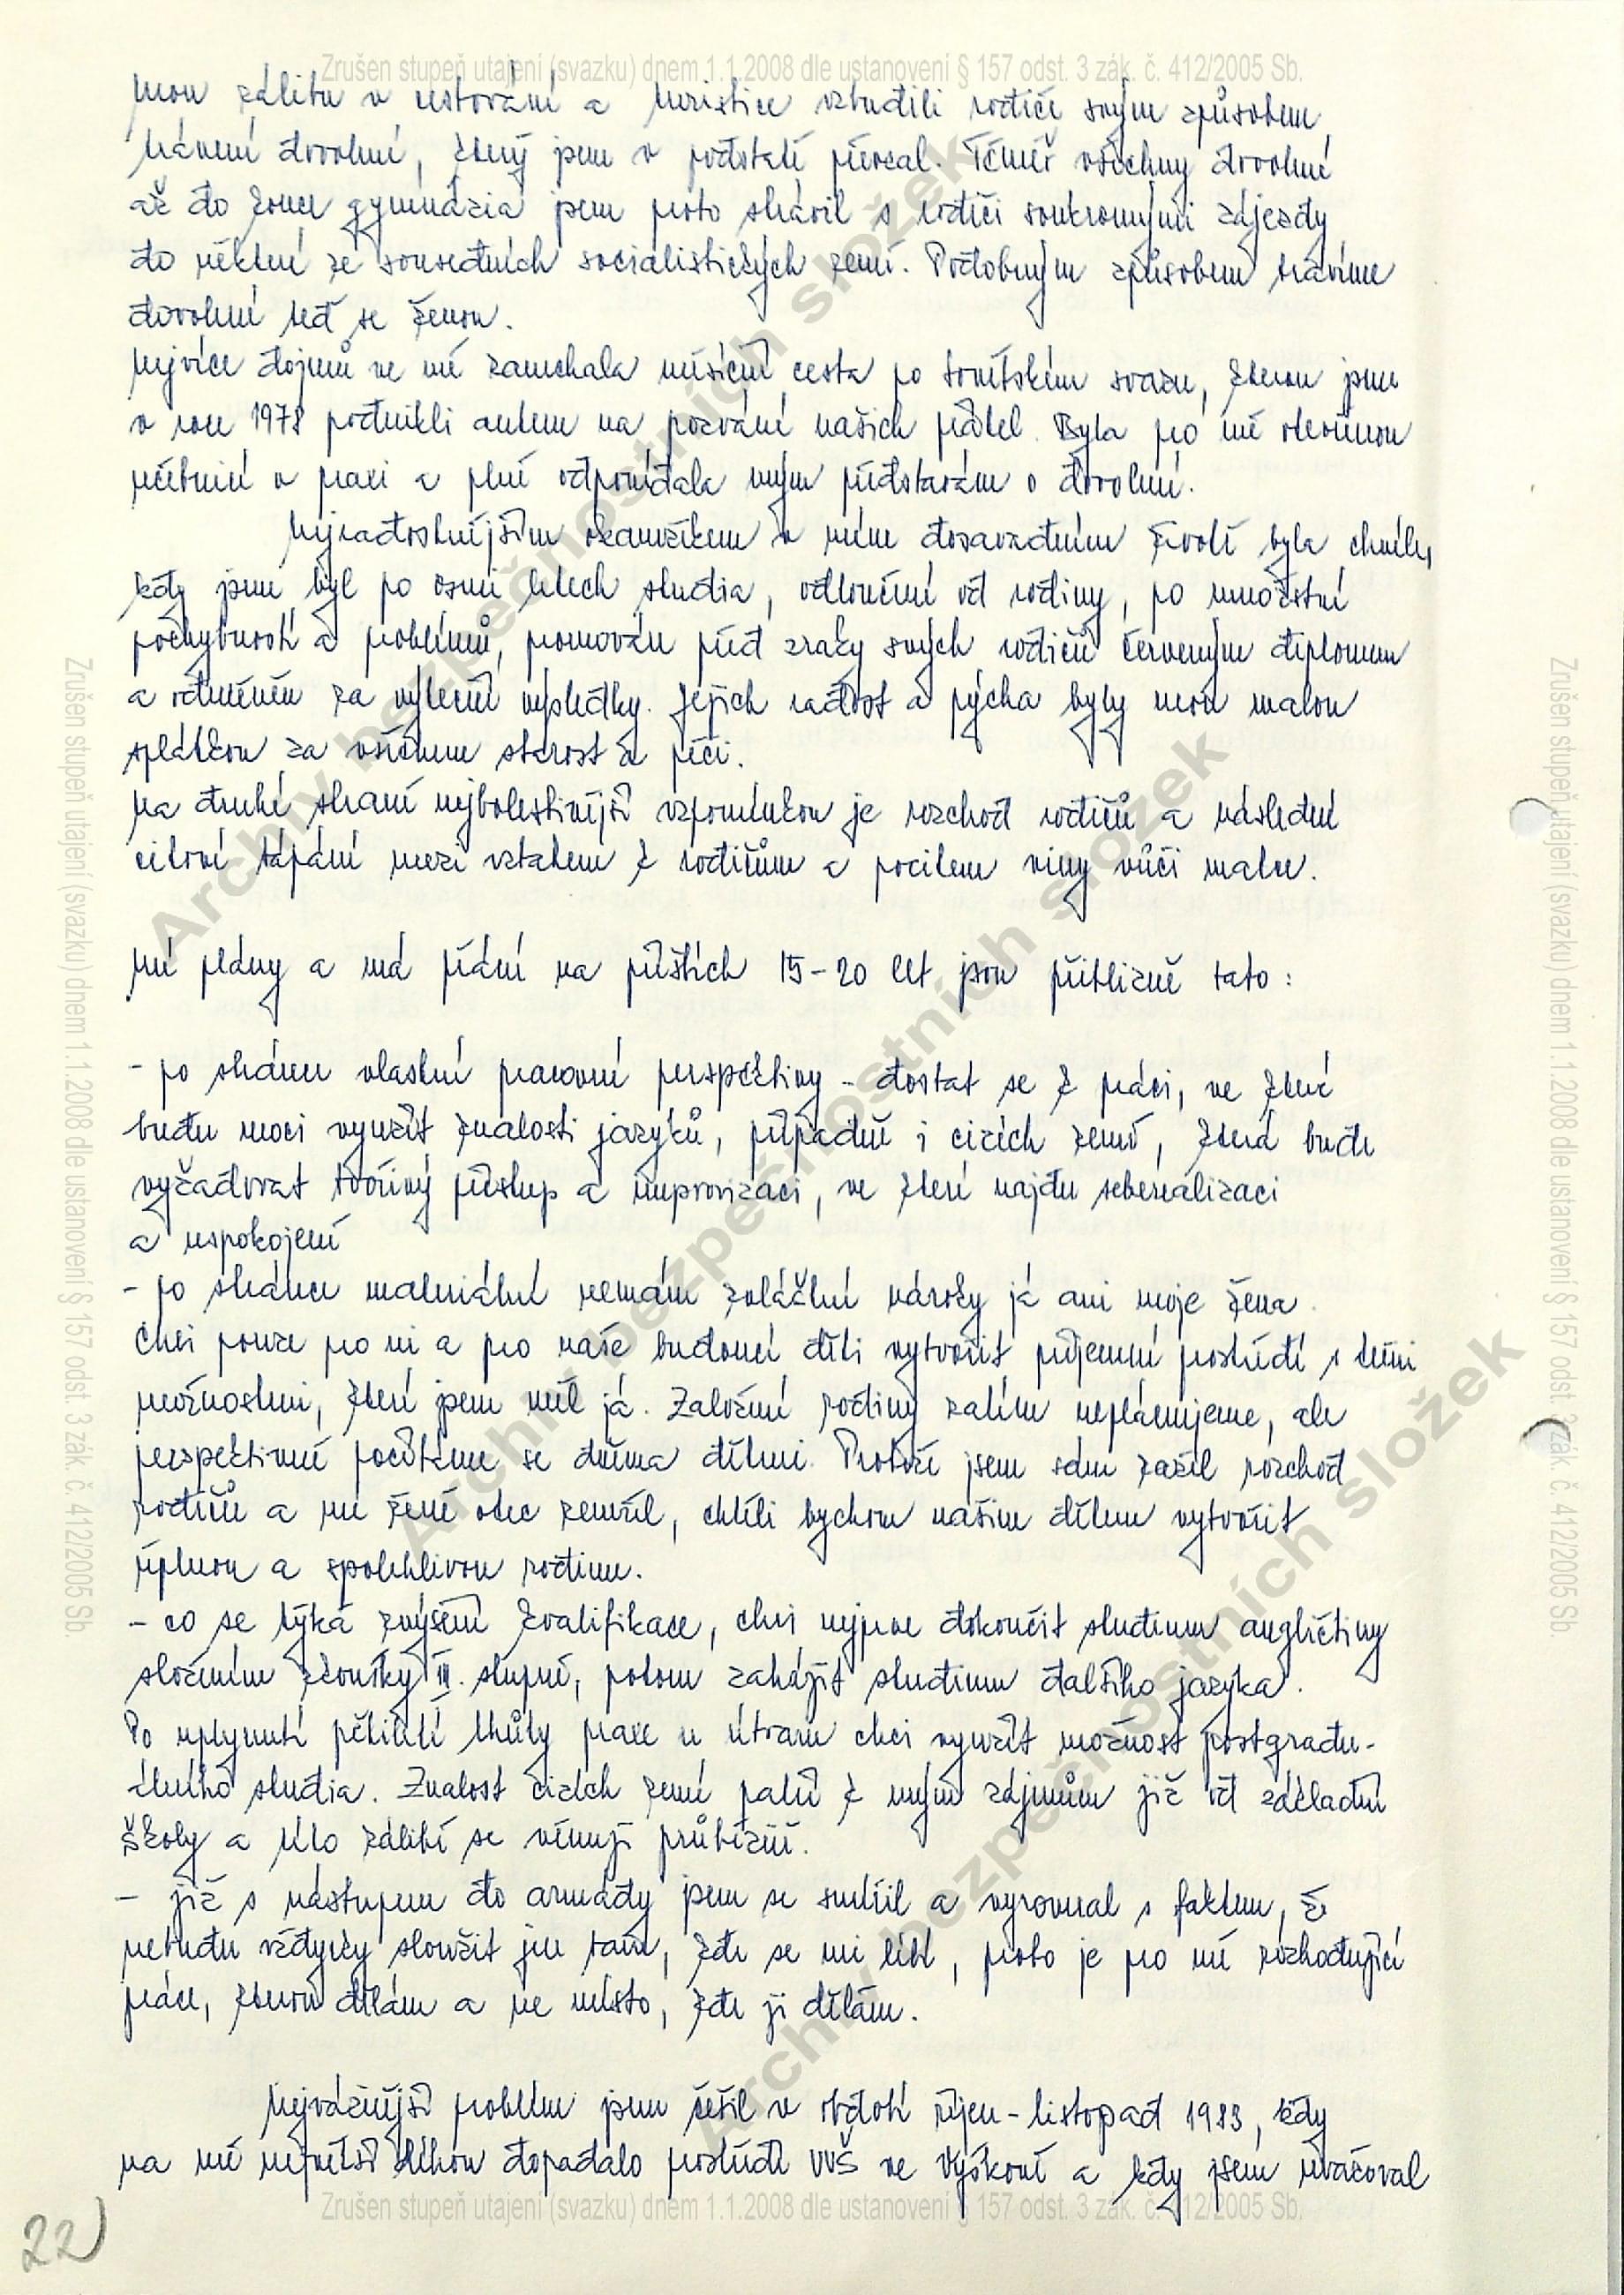 Zrušen stupeň utajení (svazku) dnem 1.1.2008 dle ustanovení § 157 odst. 3 zák. č. 412/2005 Sb.
mou zálibu v cestování a turistice vzbudili rodiče svým způsobem
trávení dovolené, který jsem v podstatě převzal. Téměř všechny dovolené
až do konce gymnázia jsem proto strávil s rodiči soukromými zájezdy
do některé ze sousedních socialistických zemí. Podobným způsobem trávíme
dovolené teď se ženou.
Nejvíce dojmů ve mě zanechala měsíční cesta po Sovětském svazu, kterou jsme
v roce 1978 podnikli autem na pozvání našich přátel. Byla pro mě otevřenou
učebnicí v praxi a plně odpovídala mým představám o dovolené.
Nejradostnějším okamžikem v mém dosavadním životě byla chvíle,
kdy jsem byl po osmi letech studia, odloučení od rodiny, po množství
pochybností a problémů, promován před zraky svých rodičů červeným diplomem
a odměněn za výteční výsledky. Jejich radost a pýcha byly mou malou
splátkou za všechnu starost a péči.
Na druhé straně nejbolestivější vzpomínkou je rozchod rodičů a následné
citové tápání mezi vztahem k rodičům a pocitem viny vůči matce.
Mé plány a má přání na příštích 15-20 let jsou přibližně tato:
- po stránce vlastní pracovní perspektivy - dostat se k práci, ve které
budu moci využít znalosti jazyků, případně i cizích zemí, která bude
vyžadovat tvořivý přístup a improvizaci, ve které najdu seberealizaci
a uspokojení
- po stránce materiální nemám zvláštní nároky já ani moje žena.
Chci pouze pro ni a pro naše budoucí děti vytvořit příjemné prostředí s těmi
možnostmi, které jsem měl já. Založení rodiny zatím neplánujeme, ale
perspektivně počítáme se dvěma dětmi. Protože jsem sám zažil rozchod
rodičů a mé ženě otec zemřel, chtěli bychom našim dětem vytvořit
úplnou a spolehlivou rodinu.
- co se týká zvýšení kvalifikace, chci nejprve dokončit studium angličtiny
složením zkoušky III. stupně, potom zahájit studium dalšího jazyka.
Po uplynutí pětileté lhůty praxe u útvaru chci využít možnost postgradu-
álního studia. Znalost cizích zemí patří k mým zájmům již od základní
školy a této zálibě se věnuji průběžně.
- již s nástupem do armády jsem se smířil a vyrovnal s faktem, že
nebudu vždycky sloužit jen tam, kde se mi líbí, proto je pro mě rozhodující
práce, kterou dělám a ne místo, kde ji dělám.
Nejvážnější problém jsem řešil v období říjen-listopad 1983, kdy
na mě největší tíhou dopadalo prostředí VVŠ ve Vyškově a kdy jsem uvažoval
Zrušen stupeň utajení (svazku) dnem 1.1.2008 dle ustanovení § 157 odst. 3 zák. č. 412/2005 Sb.
22)
Zrušen stupeň utajení (svazku) dnem 1.1.2008 dle ustanovení § 157 odst. 3 zák. č. 412/2005 Sb.
Zrušen stupeň utajení (svazku) dnem 1.1.2008 dle ustanovení § 157 odst. 3 zák. č. 412/2005 Sb.
Archiv bezpečnostních složek
Archiv bezpečnostních složek
Archiv bezpečnostních složek